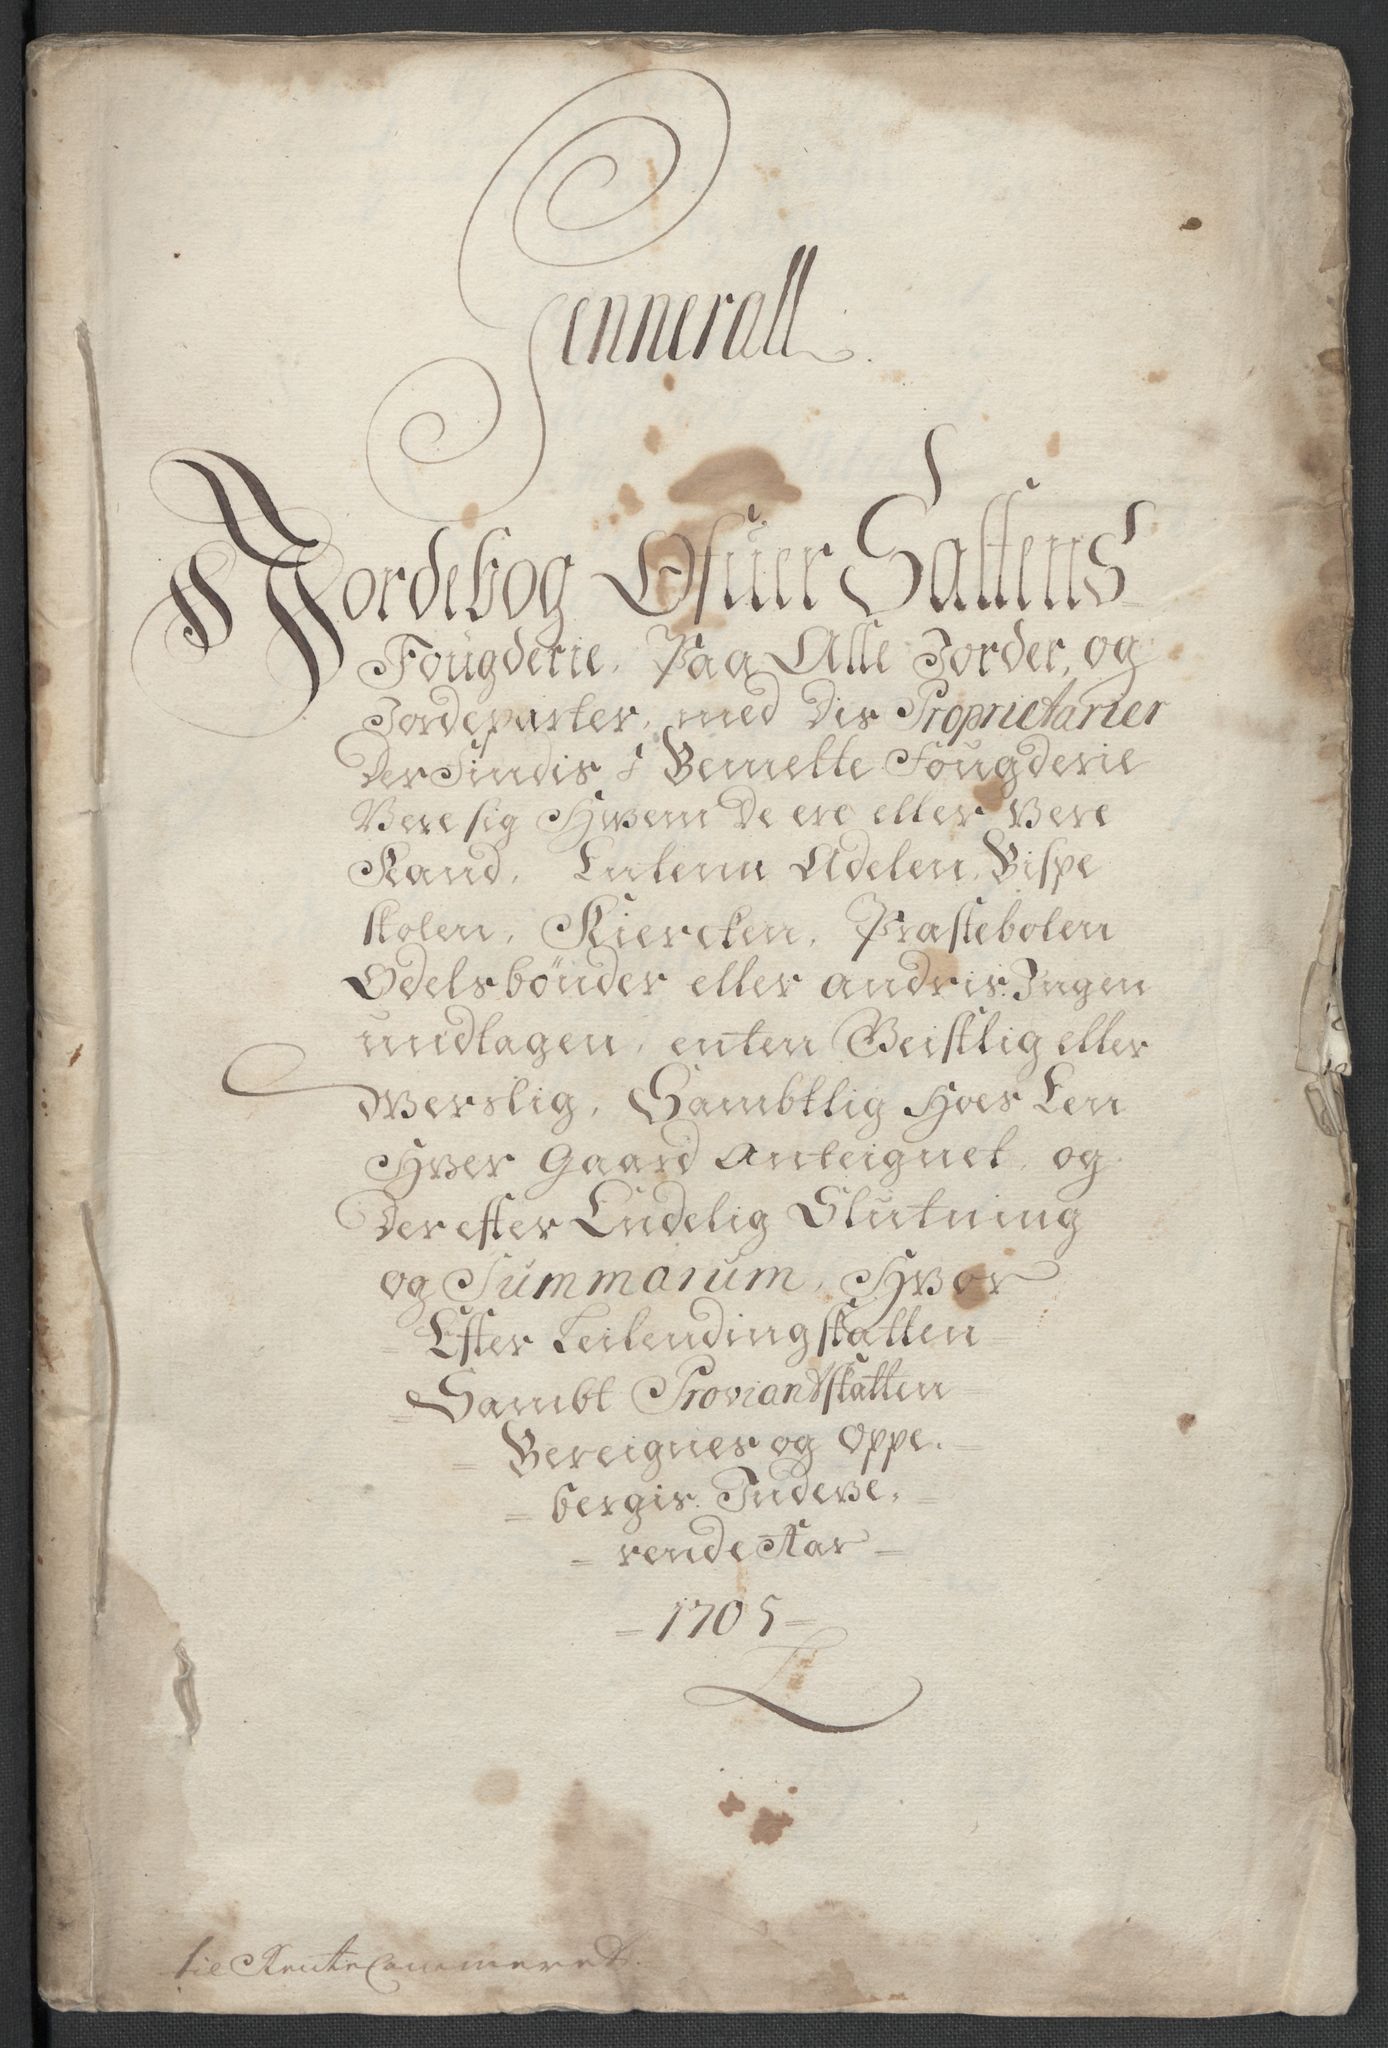 Gennerall
Jordebog Ofuer Saltens
Fougderie, Paa Alle Jorder, og
Jordeparter, med dis Proprietarier
der Findis i Bemelte Fougderie
Være sig Hvem de ere eller være
Kand, Entenn Adelen, Bispe
stolen, Kiercken, Præstebolen
Odelsbönder eller andris Ingen
undtagen, enten Geistlig eller
Verslig, Sambtlig Hoes Een
Hver Gaard Anteignet, og
der efter Endelig Slutning
og Summarum, Hvor
Efter Leilendingskatten
Sambt Proviantskatten
Bereignes og Oppe-
bergis Indeve-
rende Aar
1705
Til RenteCammeret